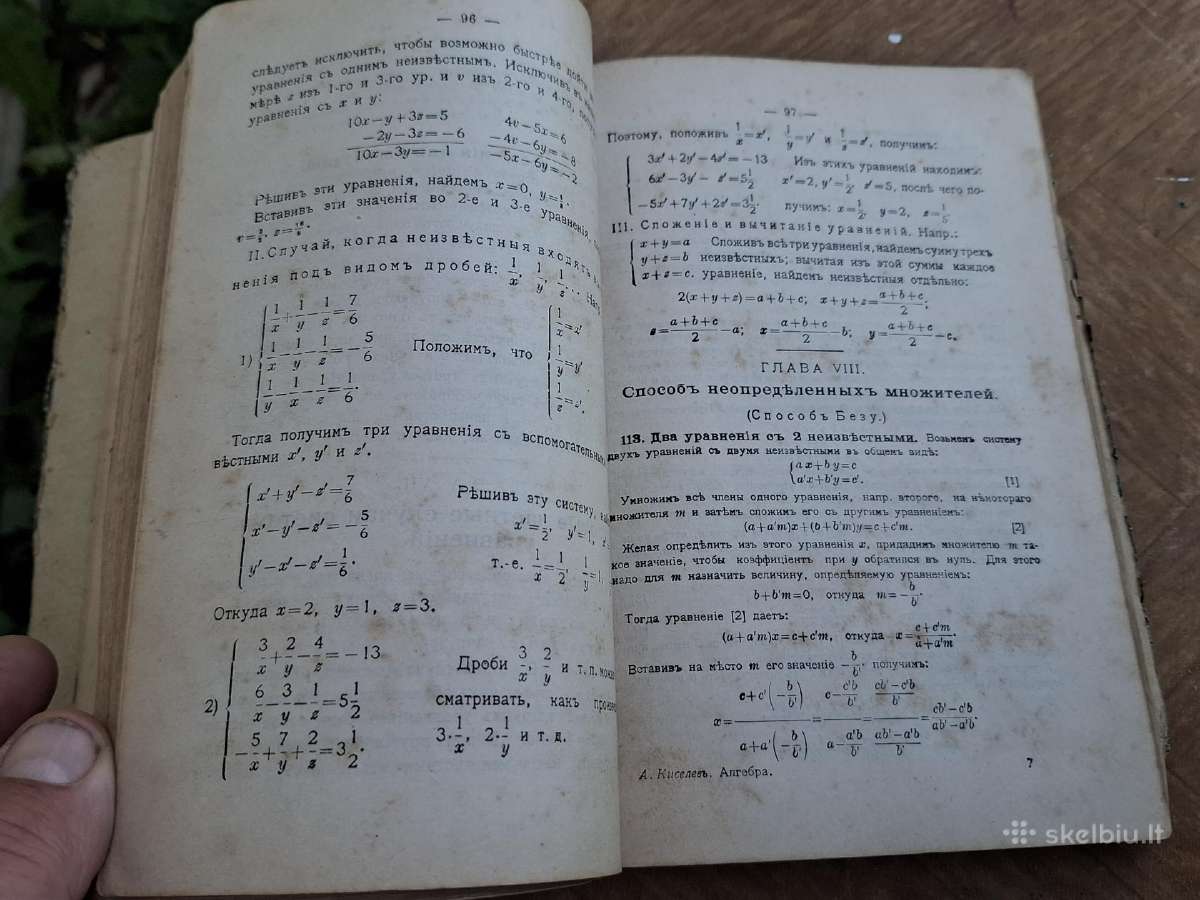 — 96 —
слѣдуетъ исключить, чтобы возможно быстрѣе
уравненія съ однимъ неизвѣстнымъ. Исключивъ
мѣрѣ z изъ 1-го и 3-го ур. и v изъ 2-го и 4-го,
уравненія съ x и y:
10x−y+3z=5 4v−5x=6
−2y−3z=−6 −4v−6y=−8
10x−3y=−1 −5x−6y=−2
Рѣшивъ эти уравненія, найдемъ x=0, y=1/3.
Вставивъ эти значенія во 2-е и 3-е уравненія,
II. Случай, когда неизвѣстныя входятъ
ненія подъ видомъ дробей: 1/x, 1/y, 1/z...
1) 1/x+1/y−1/z=7/6
1/x−1/y−1/z=−5/6 Положимъ, что 1/x=x′
1/y−1/x−1/z=1/6. 1/y=y′
1/z=z′.
Тогда получимъ три уравненія съ вспомогательными
вѣстными x′, y′ и z′.
x′+y′−z′=7/6 Рѣшивъ эту систему,
x′−y′−z′=−5/6 x′=1/2, y′=1,
y′−x′−z′=1/6. т.-е. 1/x=1/2, 1/y=1,
Откуда x=2, y=1, z=3.
2) 3/x+2/y−4/z=−13 Дроби 3/x, 2/y и т. п.
6/x−3/y−1/z=5 1/2 сматривать, какъ
−5/x+7/y+2/z=3 1/2. 3·1/x, 2·1/y и т. д.
— 97 —
Поэтому, положивъ 1/x=x′, 1/y=y′ и 1/z=z′, получимъ:
3x′+2y′−4z′=−13 Изъ этихъ уравненій находимъ:
6x′−3y′−z′=5 1/2 x′=2, y′=1/2, z′=5, послѣ чего по-
−5x′+7y′+2z′=3 1/2. лучимъ: x=1/2, y=2, z=1/5.
III. Сложеніе и вычитаніе уравненій. Напр.:
x+y=a Сложивъ всѣ три уравненія, найдемъ сумму трехъ
y+z=b неизвѣстныхъ; вычитая изъ этой суммы каждое
x+z=c. уравненіе, найдемъ неизвѣстныя отдѣльно:
2(x+y+z)=a+b+c; x+y+z=(a+b+c)/2;
z=(a+b+c)/2−a; x=(a+b+c)/2−b; y=(a+b+c)/2−c.
ГЛАВА VIII.
Способъ неопредѣленныхъ множителей.
(Способъ Безу.)
113. Два уравненія съ 2 неизвѣстными. Возьмемъ систему
двухъ уравненій съ двумя неизвѣстными въ общемъ видѣ:
ax+by=c
a′x+b′y=c′. [1]
Умножимъ всѣ члены одного уравненія, напр. второго, на нѣкотораго
множителя m и затѣмъ сложимъ его съ другимъ уравненіемъ:
(a+a′m)x+(b+b′m)y=c+c′m. [2]
Желая опредѣлить изъ этого уравненія x, придадимъ множителю m та-
кое значеніе, чтобы коэффиціентъ при y обратился въ нуль. Для этого
надо для m назначить величину, опредѣляемую уравненіемъ:
b+b′m=0, откуда m=−b/b′.
Тогда уравненіе [2] даетъ:
(a+a′m)x=c+c′m, откуда x=(c+c′m)/(a+a′m).
Вставивъ на мѣсто m его значеніе −b/b′, получимъ:
x=(c+c′(−b/b′))/(a+a′(−b/b′))=(c−c′b/b′)/(a−a′b/b′)=((cb′−c′b)/b′)/((ab′−a′b)/b′)=(cb′−c′b)/(ab′−a′b).
А. Киселевъ. Алгебра. 7
skelbiu.lt